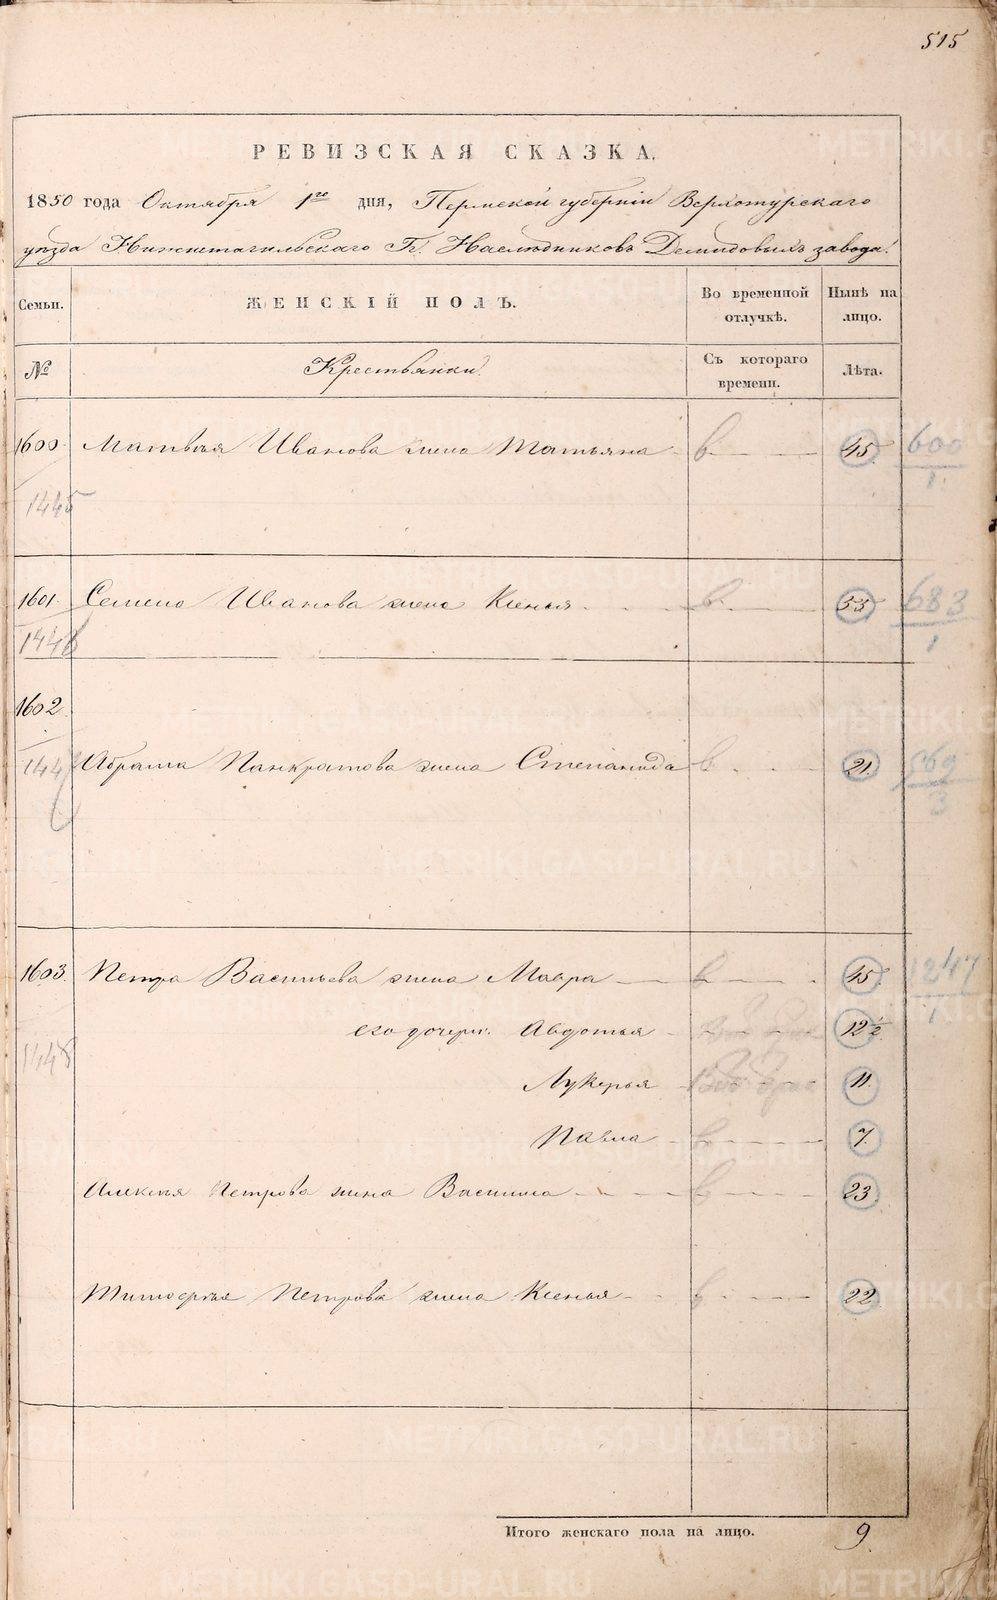 515
РЕВИЗСКАЯ СКАЗКА.
1850 года Октября 1го дня, Пермской губерніи Верхотурскаго
уѣзда Нижнетагильскаго Гг. Наслѣдниковъ Демидовыхъ завода.
Семьи. ЖЕНСКІЙ ПОЛЪ. Во временной отлучкѣ. Нынѣ на лицо.
№ Крестьянки. Съ котораго времени. Лѣта.
1600 Матвѣя Иванова жена Татьяна в 45. 600
1445 1.
1601 Семена Иванова жена Ксенья в 683
1446 1
1602
Абрама Панкратова жена Степанида в 21. 569
3
1603. Петра Васильева жена Мавра в 45 1247
его дочери: Авдотья 12½
1448 Лукерья 11.
Павла в 7.
Алексѣя Петрова жена Василиса в 23
Тимофея Петрова жена Ксенья в 22
Итого женскаго пола на лицо. 9.
METRIKI.GASO-URAL.RU